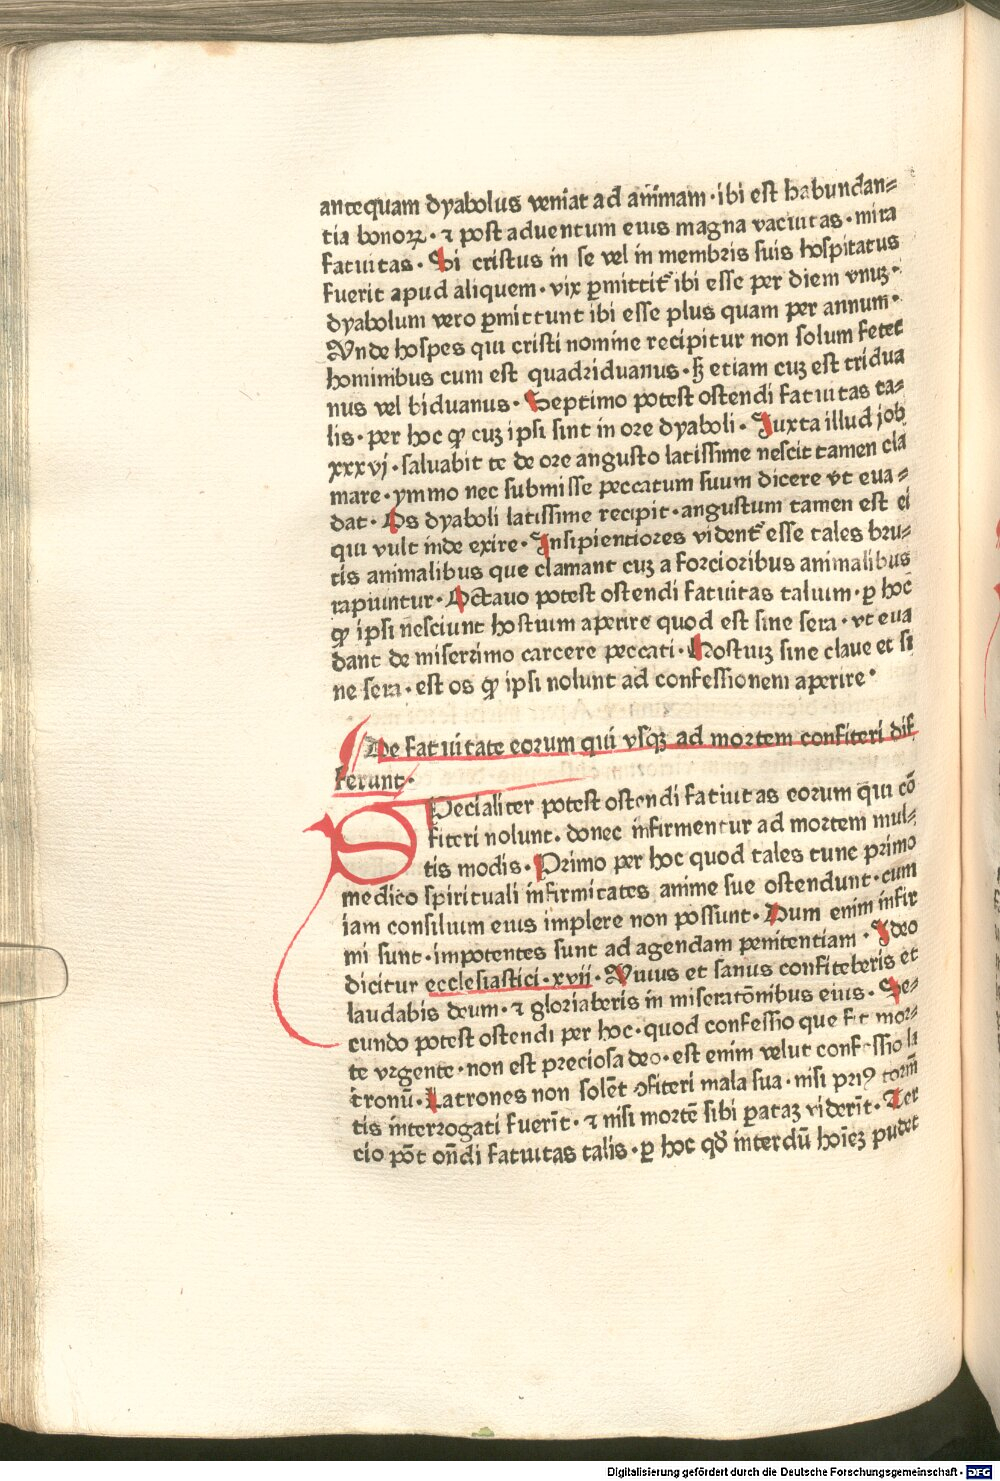 antequam dyabolus veniat ad animam · ibi est habundan=
tia bonoꝝ · ⁊ post aduentum eius magna vacuitas · mira
fatuitas · Si cristus in se vel in membris suis hospitatus
fuerit apud aliquem · vix ꝑmittit̄ ibi esse per diem vnuꝫ ·
dyabolum vero ꝑmittunt ibi esse plus quam per annum ·
Vnde hospes qui cristi nomine recipitur non solum fetet
hominibus cum est quadriduanus · sꝫ etiam cuꝫ est tridua
nus vel biduanus · Septimo potest ostendi fatuitas ta=
lis · per hoc ꝙ cuꝫ ipsi sint in ore dyaboli · Juxta illud job
xxxvj · saluabit te de ore angusto latissime nescit tamen cla
mare · ymmo nec submisse peccatum suum dicere vt eua=
dat · Os dyaboli latissime recipit · angustum tamen est ei
qui vult inde exire · Insipientiores vident̄ esse tales bru=
tis animalibus que clamant cuꝫ a forcioribus animalibus
rapiuntur · Octauo potest ostendi fatuitas talium · ꝑ hoc
ꝙ ipsi nesciunt hostium aperire quod est sine sera · vt eua
dant de miserrimo carcere peccati · Hostiuꝫ sine claue et si
ne sera · est os ꝙ ipsi nolunt ad confessionem aperire ·
De fatuitate eorum qui vsqꝫ ad mortem confiteri dif
ferunt ·
SPecialiter potest ostendi fatiutas eorum q̄ui cō
fiteri nolunt . donec infirmentur ad mortem mul=
tis modis · Primo per hoc quod tales tunc primo
medico spirituali infirmitates anime sue ostendunt · cum
iam consilium eius implere non possunt · Dum enim infir
mi sunt · impotentes sunt ad agendam penitentiam · Ideo
dicitur ecclesiastici · xvii · Viuus et sanus confiteberis et
laudabis deum · ⁊ gloriaberis in miseratōnibus eius · Se=
cundo potest ostendi per hoc · quod confessio que fit mor=
te vrgente · non est preciosa deo · est enim velut confessio la
tronū · Latrones non solēt ꝯfiteri mala sua · nisi priꝰ torm̄
tis interrogati fuerīt · ⁊ nisi mortē sibi ꝑataꝫ viderīt · Ter
cio pōt on̄di fatuitas talis · ꝑ hoc qđ interdū hoīeꝫ pudet
Digitalisierung gefördert durch die Deutsche Forschungsgemeinschaft - DFG